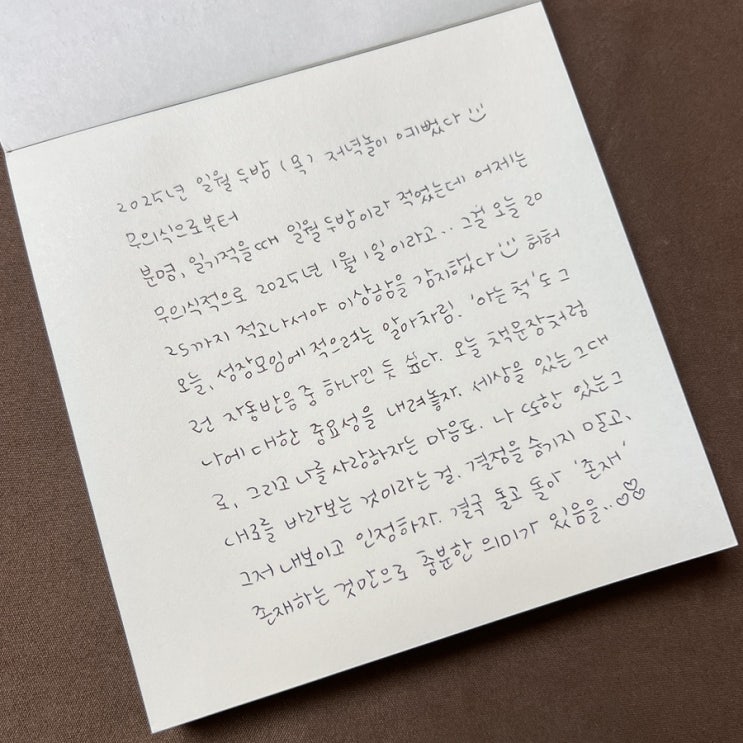 2025년 일월 두밤 (목) 저녁놀이 예뻤다
무의식으로부터
분명, 일기적을때 일월 두밤이라 적었는데 어제는
무의식적으로 2025년 1월 1일이라고.. 그걸 오늘 20
25까지 적고나서야 이상함을 감지했다 허허
오늘, 성장모임에 적으려는 알아차림. '아는 척'도 그
런 자동반응 중 하나인 듯 싶다. 오늘 책문장처럼
나에 대한 중요성을 내려놓자. 세상을 있는 그대
로, 그리고 나를 사랑하자는 마음도. 나 또한 있는 그
대로를 바라보는 것이라는 걸. 결정을 숨기지 말고,
그저 내보이고 인정하자. 결국 돌고 돌아 '존재'
존재하는 것만으로 충분한 의미가 있음을..♡♡♡